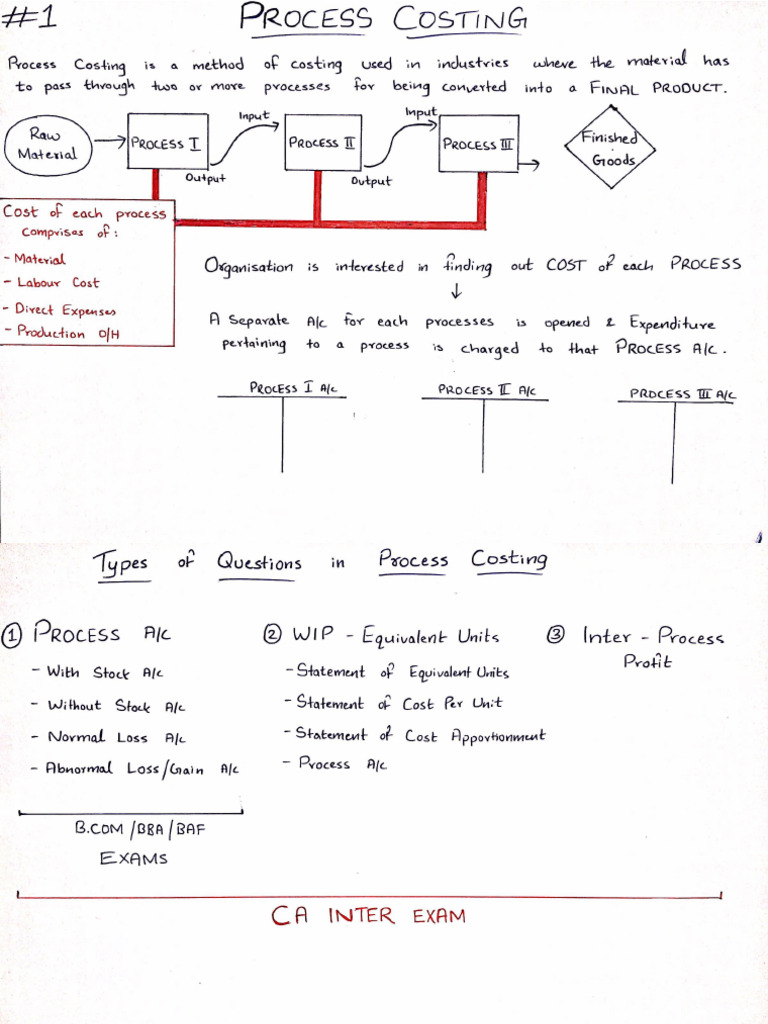 #1 PROCESS COSTING
Process Costing is a method of costing used in industries where the material has
to pass through two or more processes for being converted into a FINAL PRODUCT.
Raw
Material
PROCESS I
Input
Output
PROCESS II
Input
Output
PROCESS III
Finished
Goods
Cost of each process
comprises of:
- Material
- Labour Cost
- Direct Expenses
- Production O/H
Organisation is interested in finding out COST of each PROCESS
↓
A Separate A/c for each processes is opened & Expenditure
pertaining to a process is charged to that PROCESS A/C.
PROCESS I A/c
PROCESS II A/c
PROCESS III A/c
Types of Questions in Process Costing
① PROCESS A/c
- With Stock A/c
- Without Stock A/c
- Normal Loss A/c
- Abnormal Loss/Gain A/c
B.COM/BBA/BAF
EXAMS
② WIP - Equivalent Units
- Statement of Equivalent Units
- Statement of Cost Per Unit
- Statement of Cost Apportionment
- Process A/c
③ Inter - Process
Profit
CA INTER EXAM